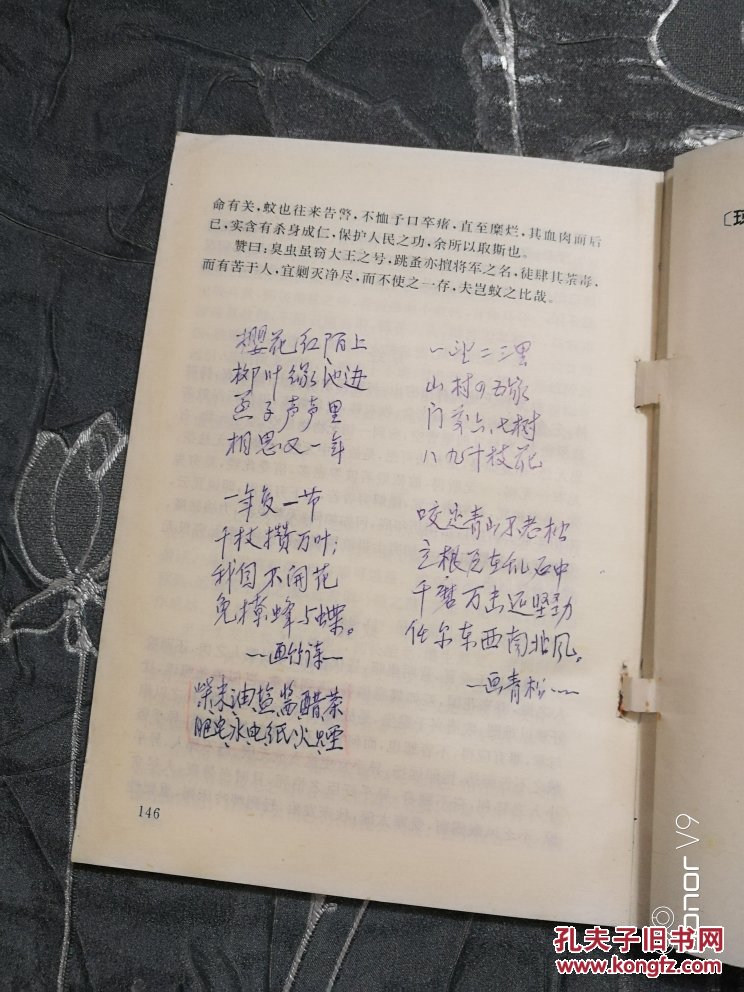 命有关，蚊也往来告警，不恤予口卒瘏，直至糜烂，其血肉而后
已，实含有杀身成仁，保护人民之功，余所以取斯也。
赞曰：臭虫虽窃大王之号，跳蚤亦擅将军之名，徒肆其荼毒，
而有苦于人，宜剿灭净尽，而不使之一存，夫岂蚊之比哉。
樱花红陌上
柳叶绿池边
燕子声声里
相思又一年
一年复一节
千枝攒万叶；
我自不开花
免撩蜂与蝶。
一画竹诗一
柴米油盐酱醋茶
肥皂水电纸火煙
一去二三里
山村四五家
门前六七树
八九十枝花
咬定青山不老松
立根原在乱石中
千磨万击还坚劲
任尔东西南北风。
一画青松一
146
honor V9
孔夫子旧书网
www.kongfz.com